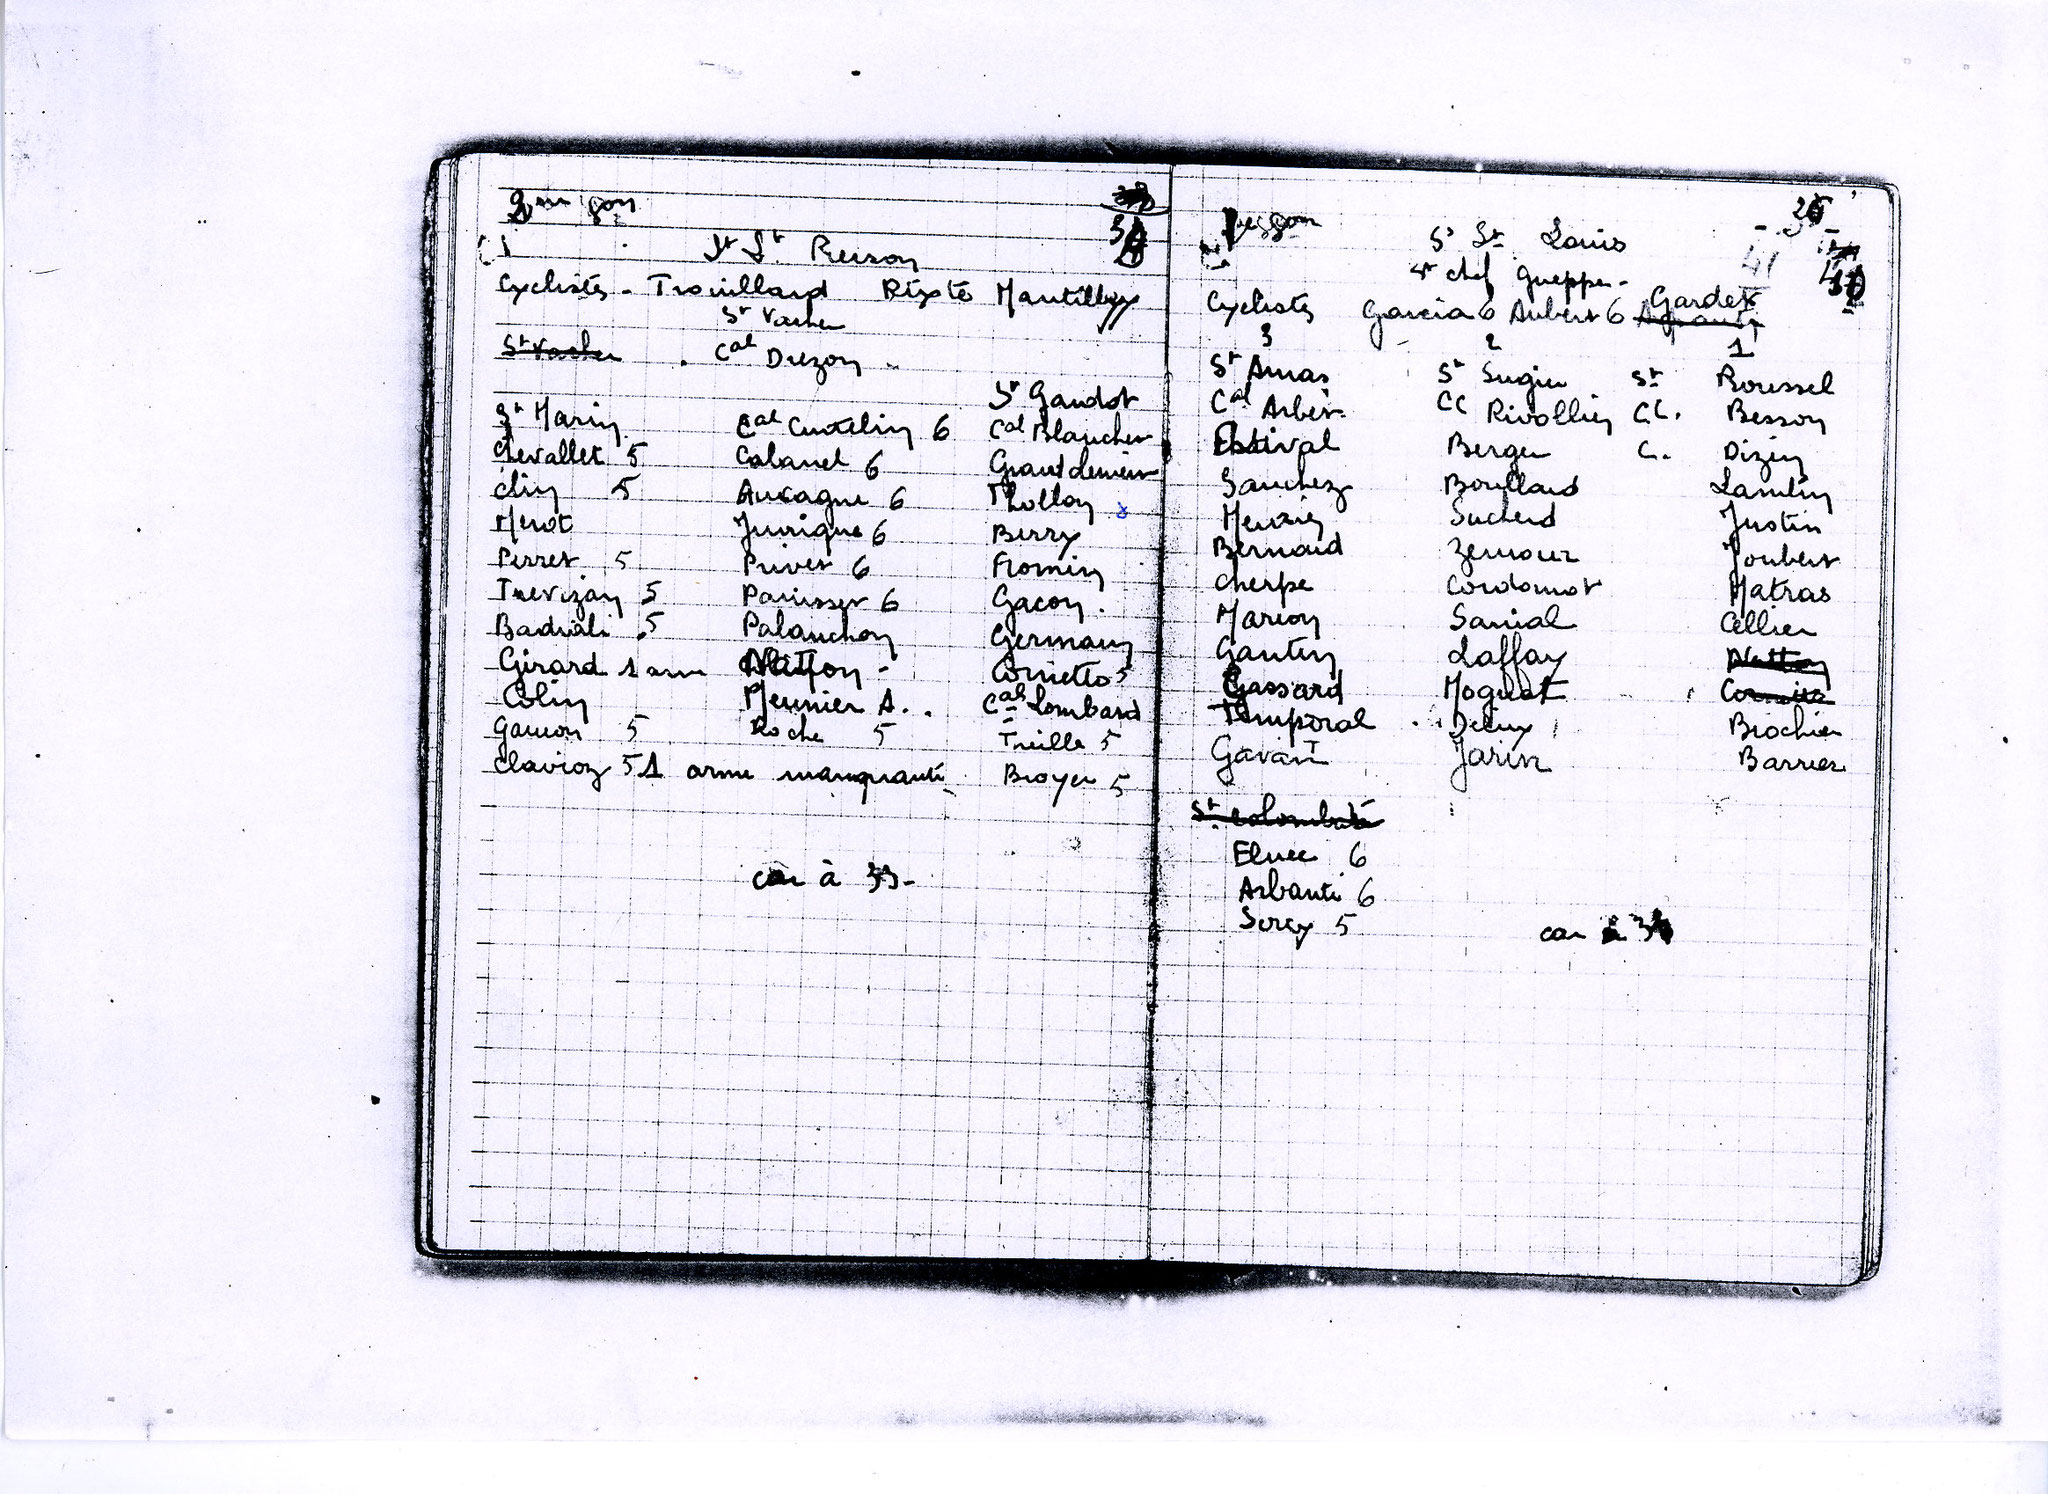 2ème Son
34
St Lt Reison
Cyclistes - Trouillard Rixte Mantilleyx
St Vacher
St Vacher . Cal Drezon
St Gaudot
St Marin Cal Cuntelin 6 Cal Blancher
Chevallet 5 Cabanel 6 Granddemeure
Clin 5 Auxagne 6 Thollon
Merot Jurrigue 6 Berry
Perret 5 Privet 6 Fromin
Trevizan 5 Parisser 6 Gacon .
Badriali 5 Palanchon Germain
Girard 1 arme Matton - Cornetto 5
Colin Meunier A. . Cal Lombard
Garcon 5 Roche 5 Treille 5
Clavioz 5 1 arme manquante Broyer 5
car à 33 -
1re Son St Lt Louis
41
St chef Gueppe -
Cyclistes Garcia 6 Aubert 6 Gardet
3 2 1
St Arnas St Sugier St Roussel
Cal Arber CC Rivollier CC. Besson
Estival Berger C. Dizin
Sanchez Boullard Lantin
Meunier Sucherd Justin
Bernard Zemour Joubert
Cherpe Cordomot Matras
Marion Sanial Cellier
Gantin Laffay Natton
Gassard Moguet Cornita
Temporal . Deux Brochier
Gavant Jarin Barrier
St Colombet
Eluee 6
Arbanti 6
Serex 5
car à 34